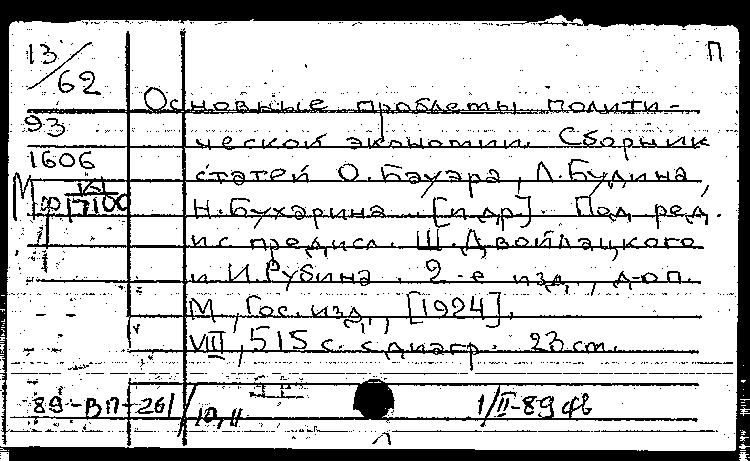 П
13/62
Основные проблемы полити-
93
ческой экономии. Сборник
1606
статей О. Бауэра, Л. Будина,
Н. Бухарина [и др]. Под ред.
и с предисл. Ш. Двойлацкого
и И. Рубина. 2-е изд., доп.
М., Гос. изд., [1924].
VIII, 515 с. с диагр. 23 см.
89-ВП-261/10,11 1/II-89